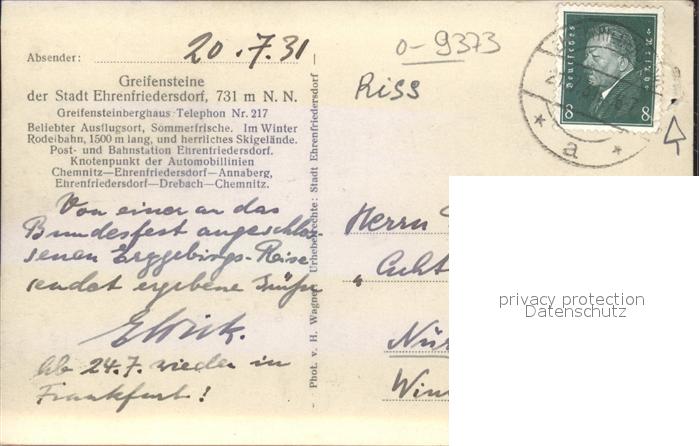 Absender: 20.7.31
Greifensteine
der Stadt Ehrenfriedersdorf, 731 m N. N.
Greifensteinberghaus Telephon Nr. 217
Beliebter Ausflugsort, Sommerfrische. Im Winter
Rodelbahn, 1500 m lang, und herrliches Skigelände.
Post- und Bahnstation Ehrenfriedersdorf.
Knotenpunkt der Automobillinien
Chemnitz—Ehrenfriedersdorf—Annaberg,
Ehrenfriedersdorf—Drebach—Chemnitz.
Von einer an das
Bundesfest angeschlos-
senen Erzgebirgs-Reise
sendet ergebene Grüße
Ab 24.7. wieder in
Frankfurt!
Phot. v. H. Wagner. Urheberrechte: Stadt Ehrenfriedersdorf
0-9373
Riss
Deutsches Reich
8 8
a
Herrn
Nür
privacy protection
Datenschutz